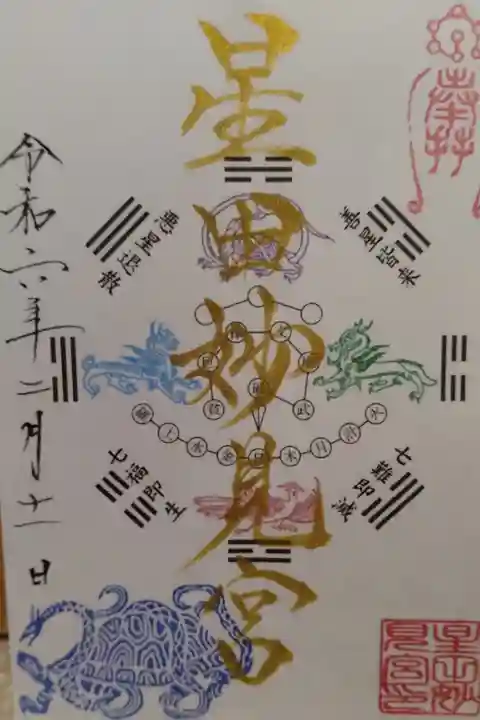 奉拝
星田妙見宮
善星皆来
悪星退散
七難即滅
七福即生
令和六年二月十一日